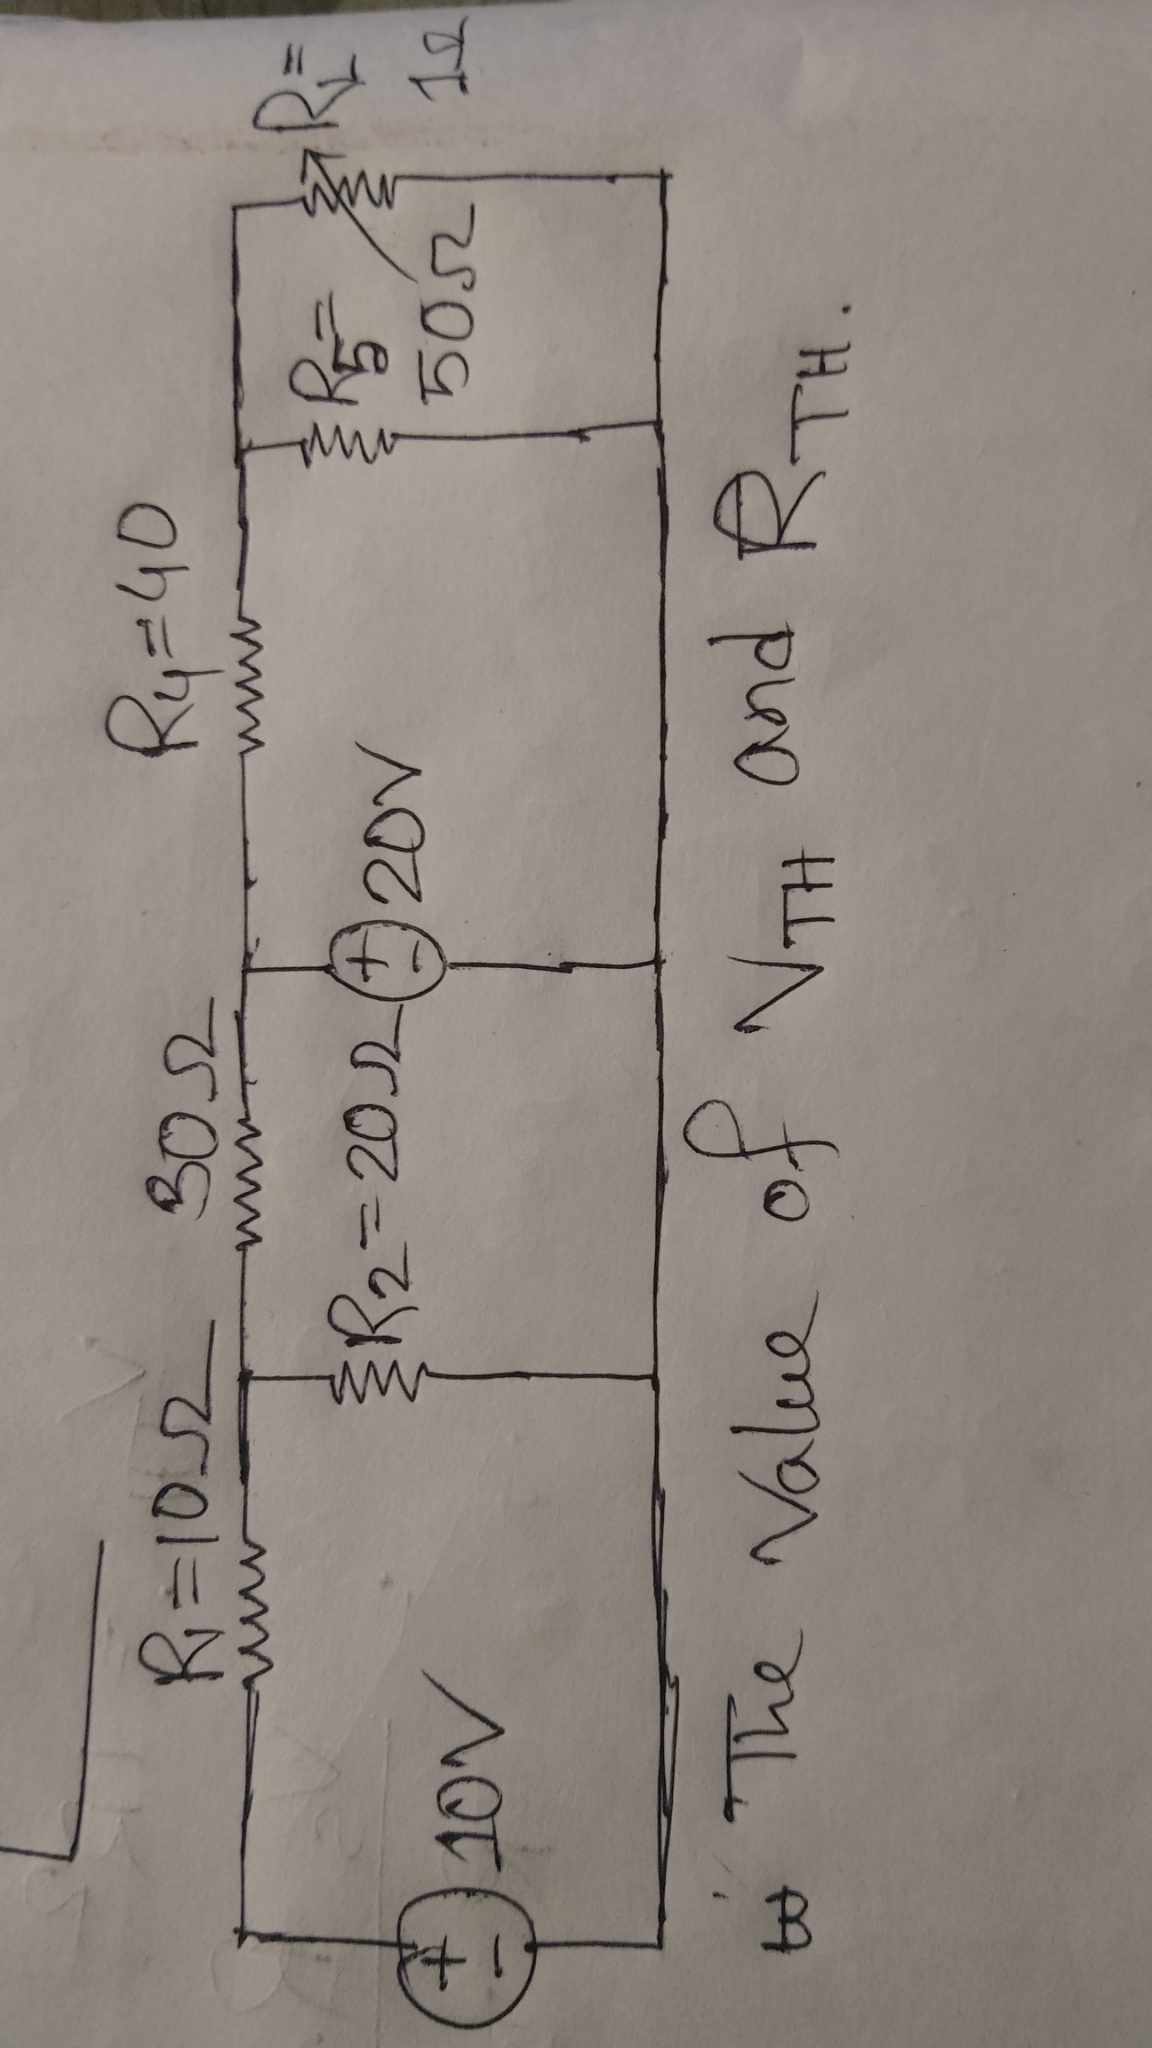 R1=10Ω
30Ω
R4=40
10V
+
-
R2=20Ω
+
-
20V
R5=
50Ω
RL=
1Ω
B The Value of VTH and RTH.